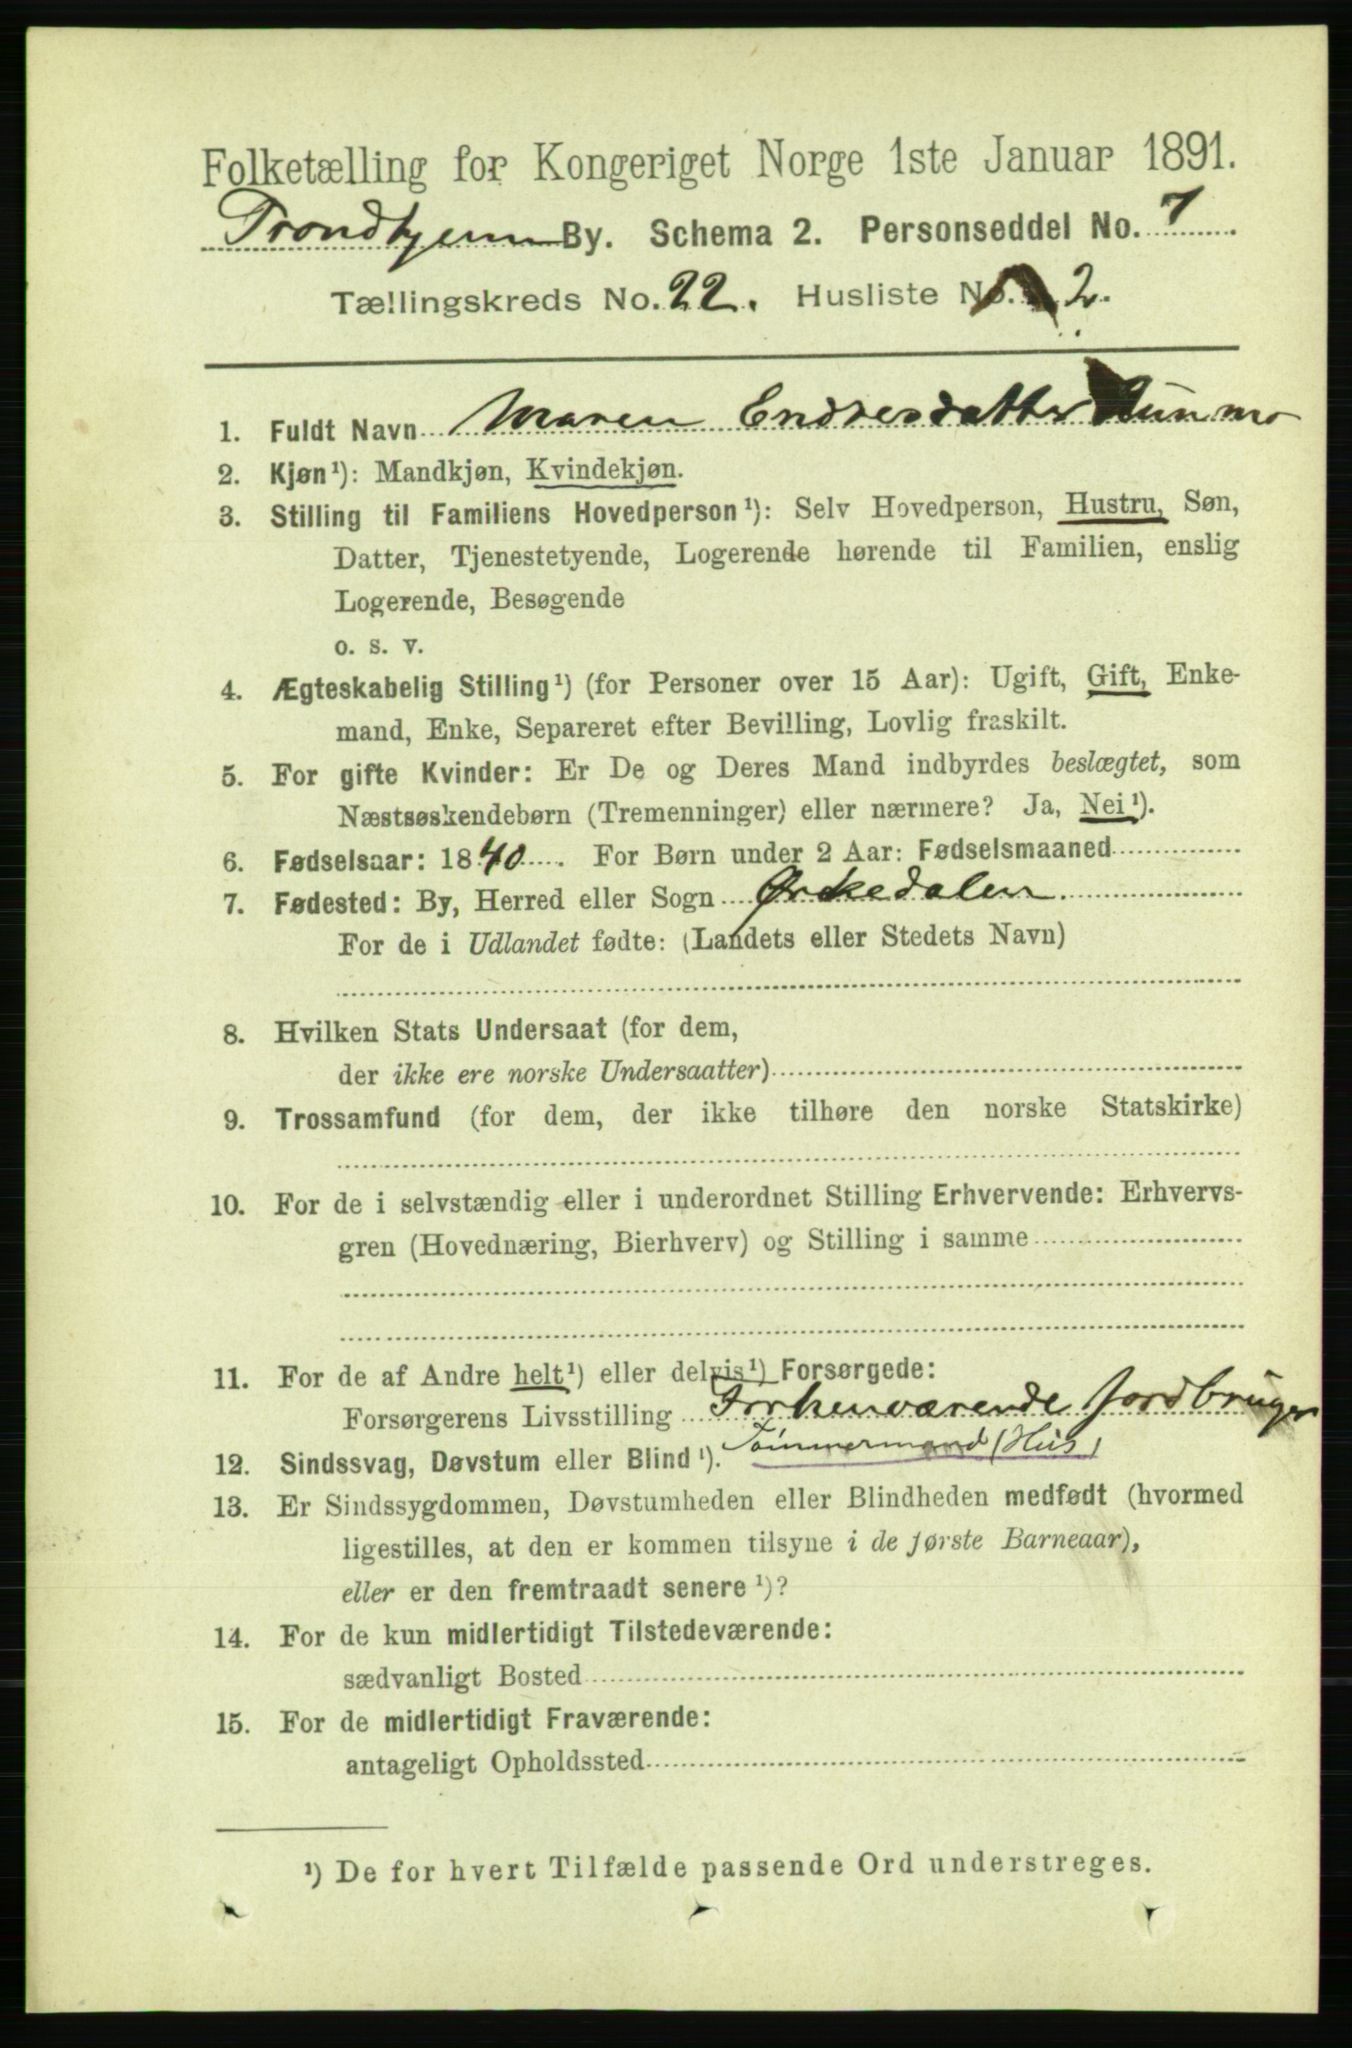 Folketælling for Kongeriget Norge 1ste Januar 1891.
Trondhjem By. Schema 2. Personseddel No. 7
Tællingskreds No. 22. Husliste No. 2.
1. Fuldt Navn Maren Endresdatter
2. Kjøn¹): Mandkjøn, Kvindekjøn.
3. Stilling til Familiens Hovedperson¹): Selv Hovedperson, Hustru, Søn,
Datter, Tjenestetyende, Logerende hørende til Familien, enslig
Logerende, Besøgende
o. s. v.
4. Ægteskabelig Stilling¹) (for Personer over 15 Aar): Ugift, Gift, Enke-
mand, Enke, Separeret efter Bevilling, Lovlig fraskilt.
5. For gifte Kvinder: Er De og Deres Mand indbyrdes beslægtet, som
Næstsøskendebørn (Tremenninger) eller nærmere? Ja, Nei¹).
6. Fødselsaar: 1840. For Børn under 2 Aar: Fødselsmaaned
7. Fødested: By, Herred eller Sogn Ørkedalen
For de i Udlandet fødte: (Landets eller Stedets Navn)
8. Hvilken Stats Undersaat (for dem,
der ikke ere norske Undersaatter)
9. Trossamfund (for dem, der ikke tilhøre den norske Statskirke)
10. For de i selvstændig eller i underordnet Stilling Erhvervende: Erhvervs-
gren (Hovednæring, Bierhverv) og Stilling i samme
11. For de af Andre helt¹) eller delvis¹) Forsørgede:
Forsørgerens Livsstilling Forhenværende Jordbruger
Tømmermand (Hus)
12. Sindssvag, Døvstum eller Blind¹).
13. Er Sindssygdommen, Døvstumheden eller Blindheden medfødt (hvormed
ligestilles, at den er kommen tilsyne i de første Barneaar),
eller er den fremtraadt senere¹)?
14. For de kun midlertidigt Tilstedeværende:
sædvanligt Bosted
15. For de midlertidigt Fraværende:
antageligt Opholdssted
¹) De for hvert Tilfælde passende Ord understreges.